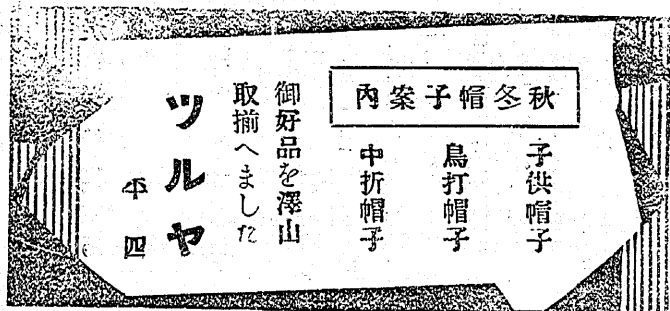 秋冬帽子案內
子供帽子
鳥打帽子
中折帽子
御好品を澤山
取揃へました
ツルヤ
本四